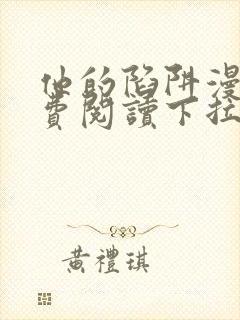 他的陷阱漫
費閱讀下拉
黃禮琪